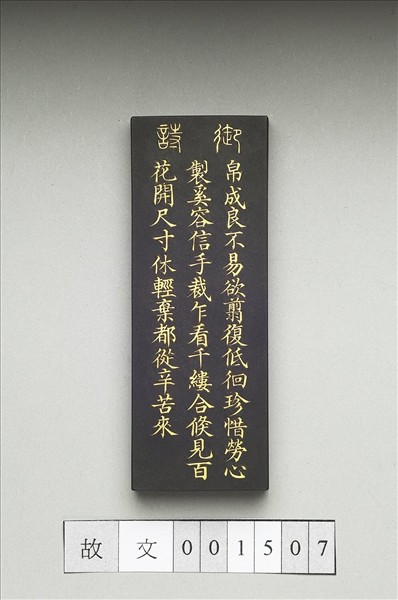 御詩
帛成良不易欲翦復低徊珍惜勞心
製奚容信手裁乍看千縷合倏見百
花開尺寸休輕棄都從辛苦來
故文001507